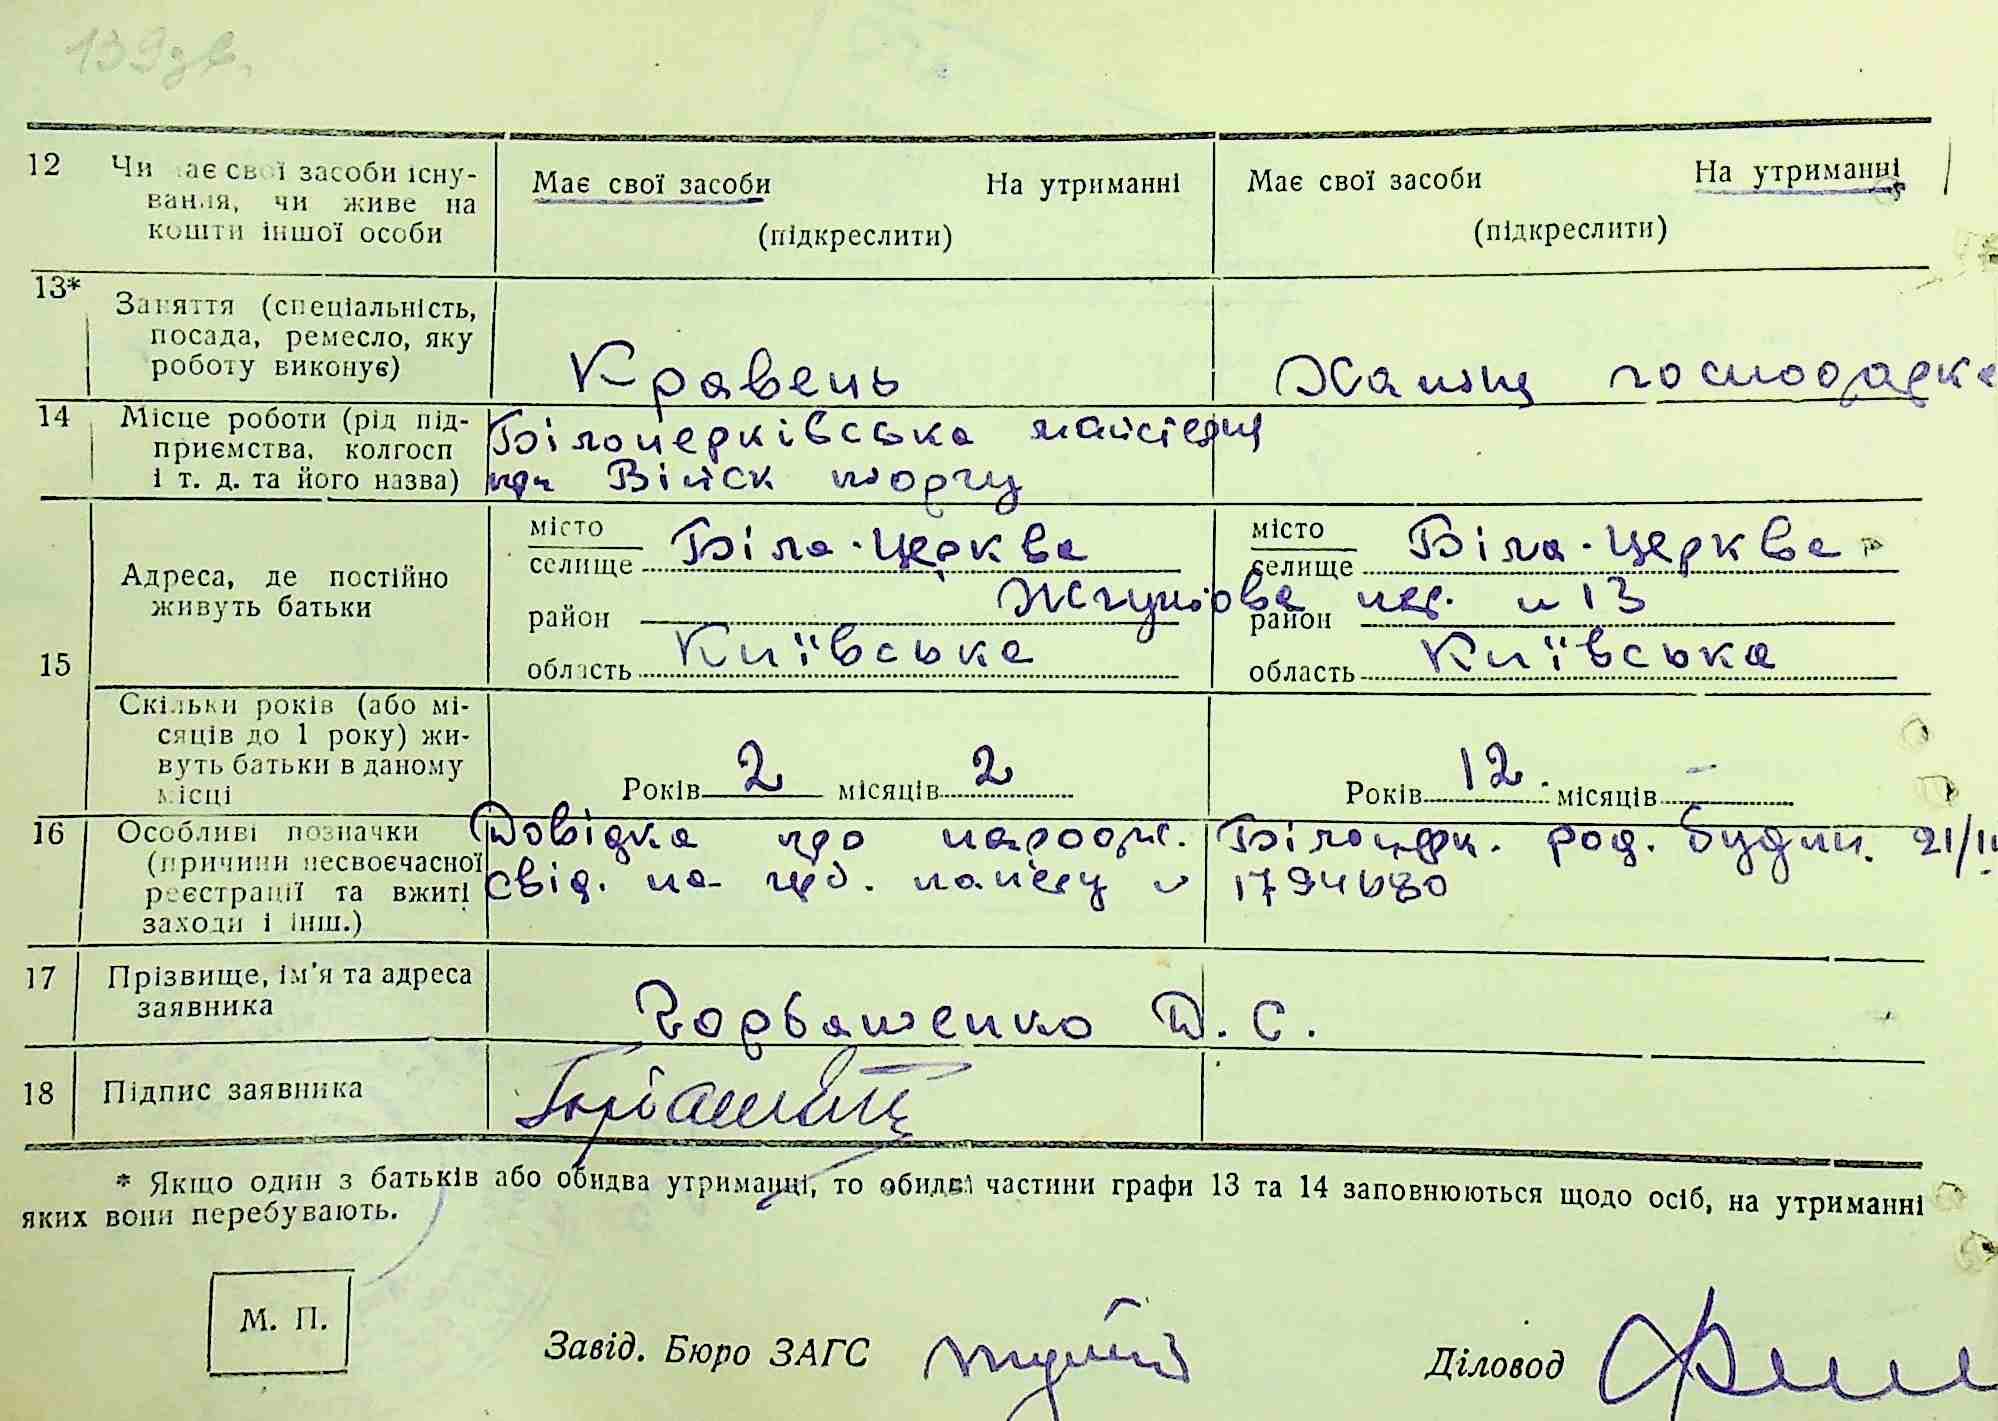 139зв.
12 Чи має свої засоби існу-
вання, чи живе на
кошти іншої особи
Має свої засоби На утриманні
(підкреслити)
Має свої засоби На утриманні
(підкреслити)
13* Заняття (спеціальність,
посада, ремесло, яку
роботу виконує)
Кравець
Хатня господарка
14 Місце роботи (рід під-
приємства, колгосп
і т. д. та його назва)
Білоцерківська майстерня
при Війск торгу
15 Адреса, де постійно
живуть батьки
місто
селище Біла-Церква
район
область Київська
місто
селище Біла-Церква
пер. н 13
район
область Київська
Скільки років (або мі-
сяців до 1 року) жи-
вуть батьки в даному
місці
Років 2 місяців 2
Років 12 місяців -
16 Особливі позначки
(причини несвоєчасної
реєстрації та вжиті
заходи і інш.)
Довідка про народж. Білоцерк. род. будин. 21/II
свід. на
17 Прізвище, ім'я та адреса
заявника
Горбашенко Д. С.
18 Підпис заявника
* Якщо один з батьків або обидва утриманці, то обидві частини графи 13 та 14 заповнюються щодо осіб, на утриманні
яких вони перебувають.
М. П.
Завід. Бюро ЗАГС
Діловод